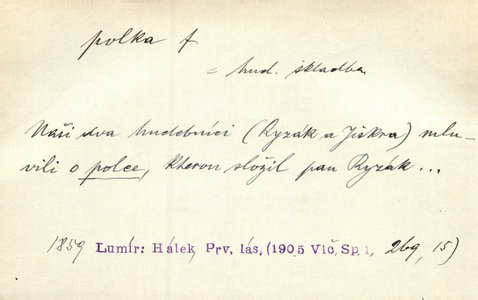 polka f
= hud. skladba
Naši dva hudebníci (Ryzák a Jiskra) mlu-
vili o polce, kterou složil pan Ryzák...
1859 Lumír: Hálek, Prv. lás, (1905 Vlč, Sp, 1, 269, 15)